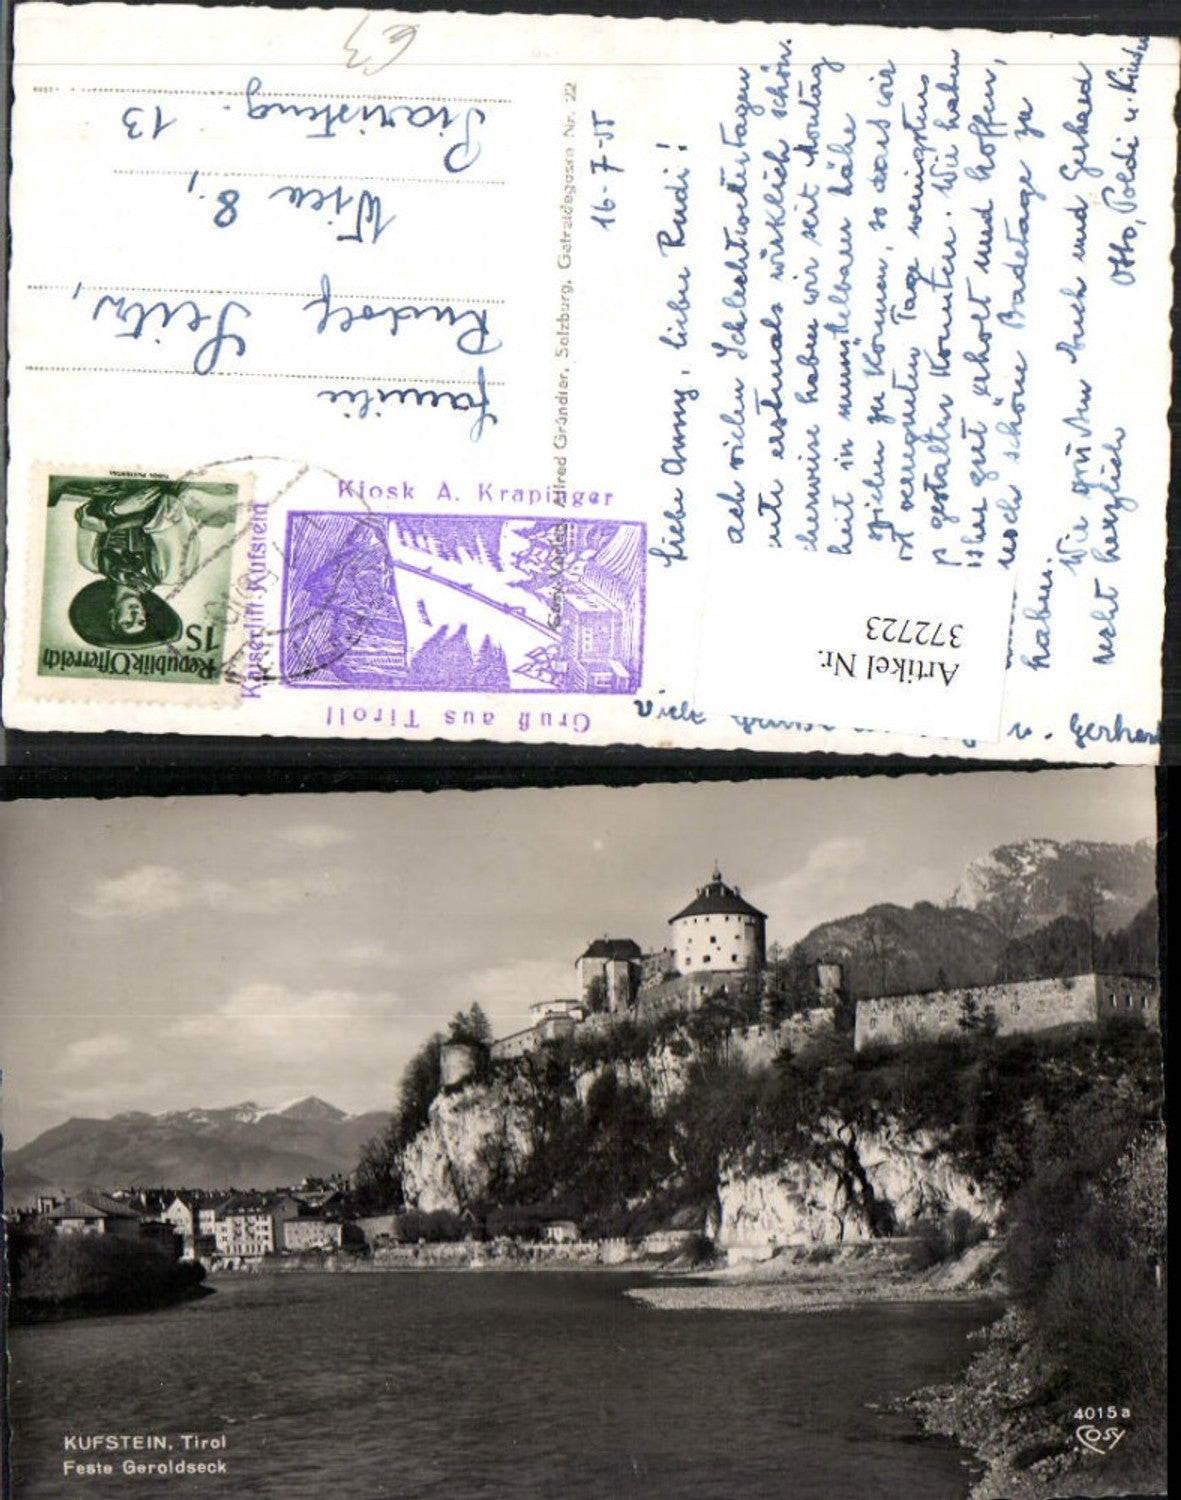 €3
Familie
Rudolf Seitz,
Wien 8.,
Piaristeng. 13
Republik Österreich
1S
Kiosk A. Krapinger
Kaiserlift-Kufstein
Gruß aus Tirol!
Alfred Gründler, Salzburg, Getreidegasse Nr. 22
16-7-55
Liebe Anny, lieber Rudi!
ach vielen Schlechtwettertagen
ute erstmals wirklich schön.
cherweise haben wir seit Montag
heit in unmittelbarer Nähe
spielen zu können, so dass wir
verregneten Tage wenigstens
gestalten konnten. Wir haben
gut erholt und hoffen,
noch schöne Badetage zu
haben.
Wir grüßen Euch und Gerhard
recht herzlich
Otto, Poldi u. Kinder
Viele
u. Gerhard
Artikel Nr.
372723
KUFSTEIN, Tirol
Feste Geroldseck
4015a
Cosy